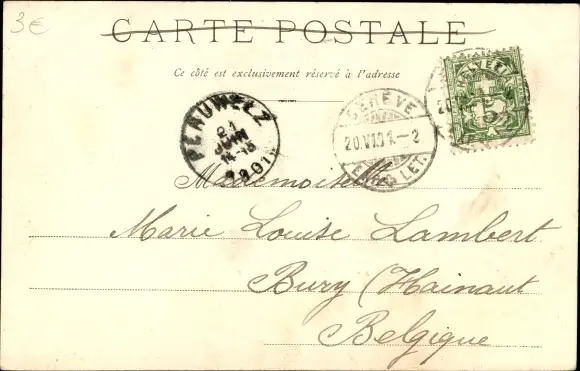 3€
CARTE POSTALE
Ce côté est exclusivement réservé à l'adresse
PERUWELZ
21
JUIN
1901
GENÈVE
20.VI.01.–2
LET.
HELVETIA
5
Mademoiselle
Marie Louise Lambert
Bury (Hainaut
Belgique